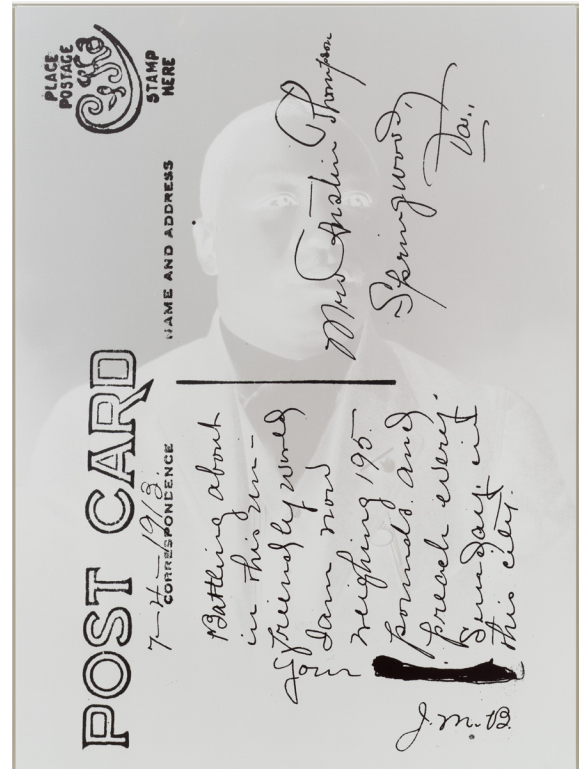 POST CARD
PLACE
POSTAGE
STAMP
HERE
7-4-1913.
CORRESPONDENCE
NAME AND ADDRESS
Battling about
in this un-
friendly world
I am now
weighing 195
pounds and
preach every
Sunday in
this city.
Your
J.M.B.
Mrs Austin Thompson
Springwood,
Va.,